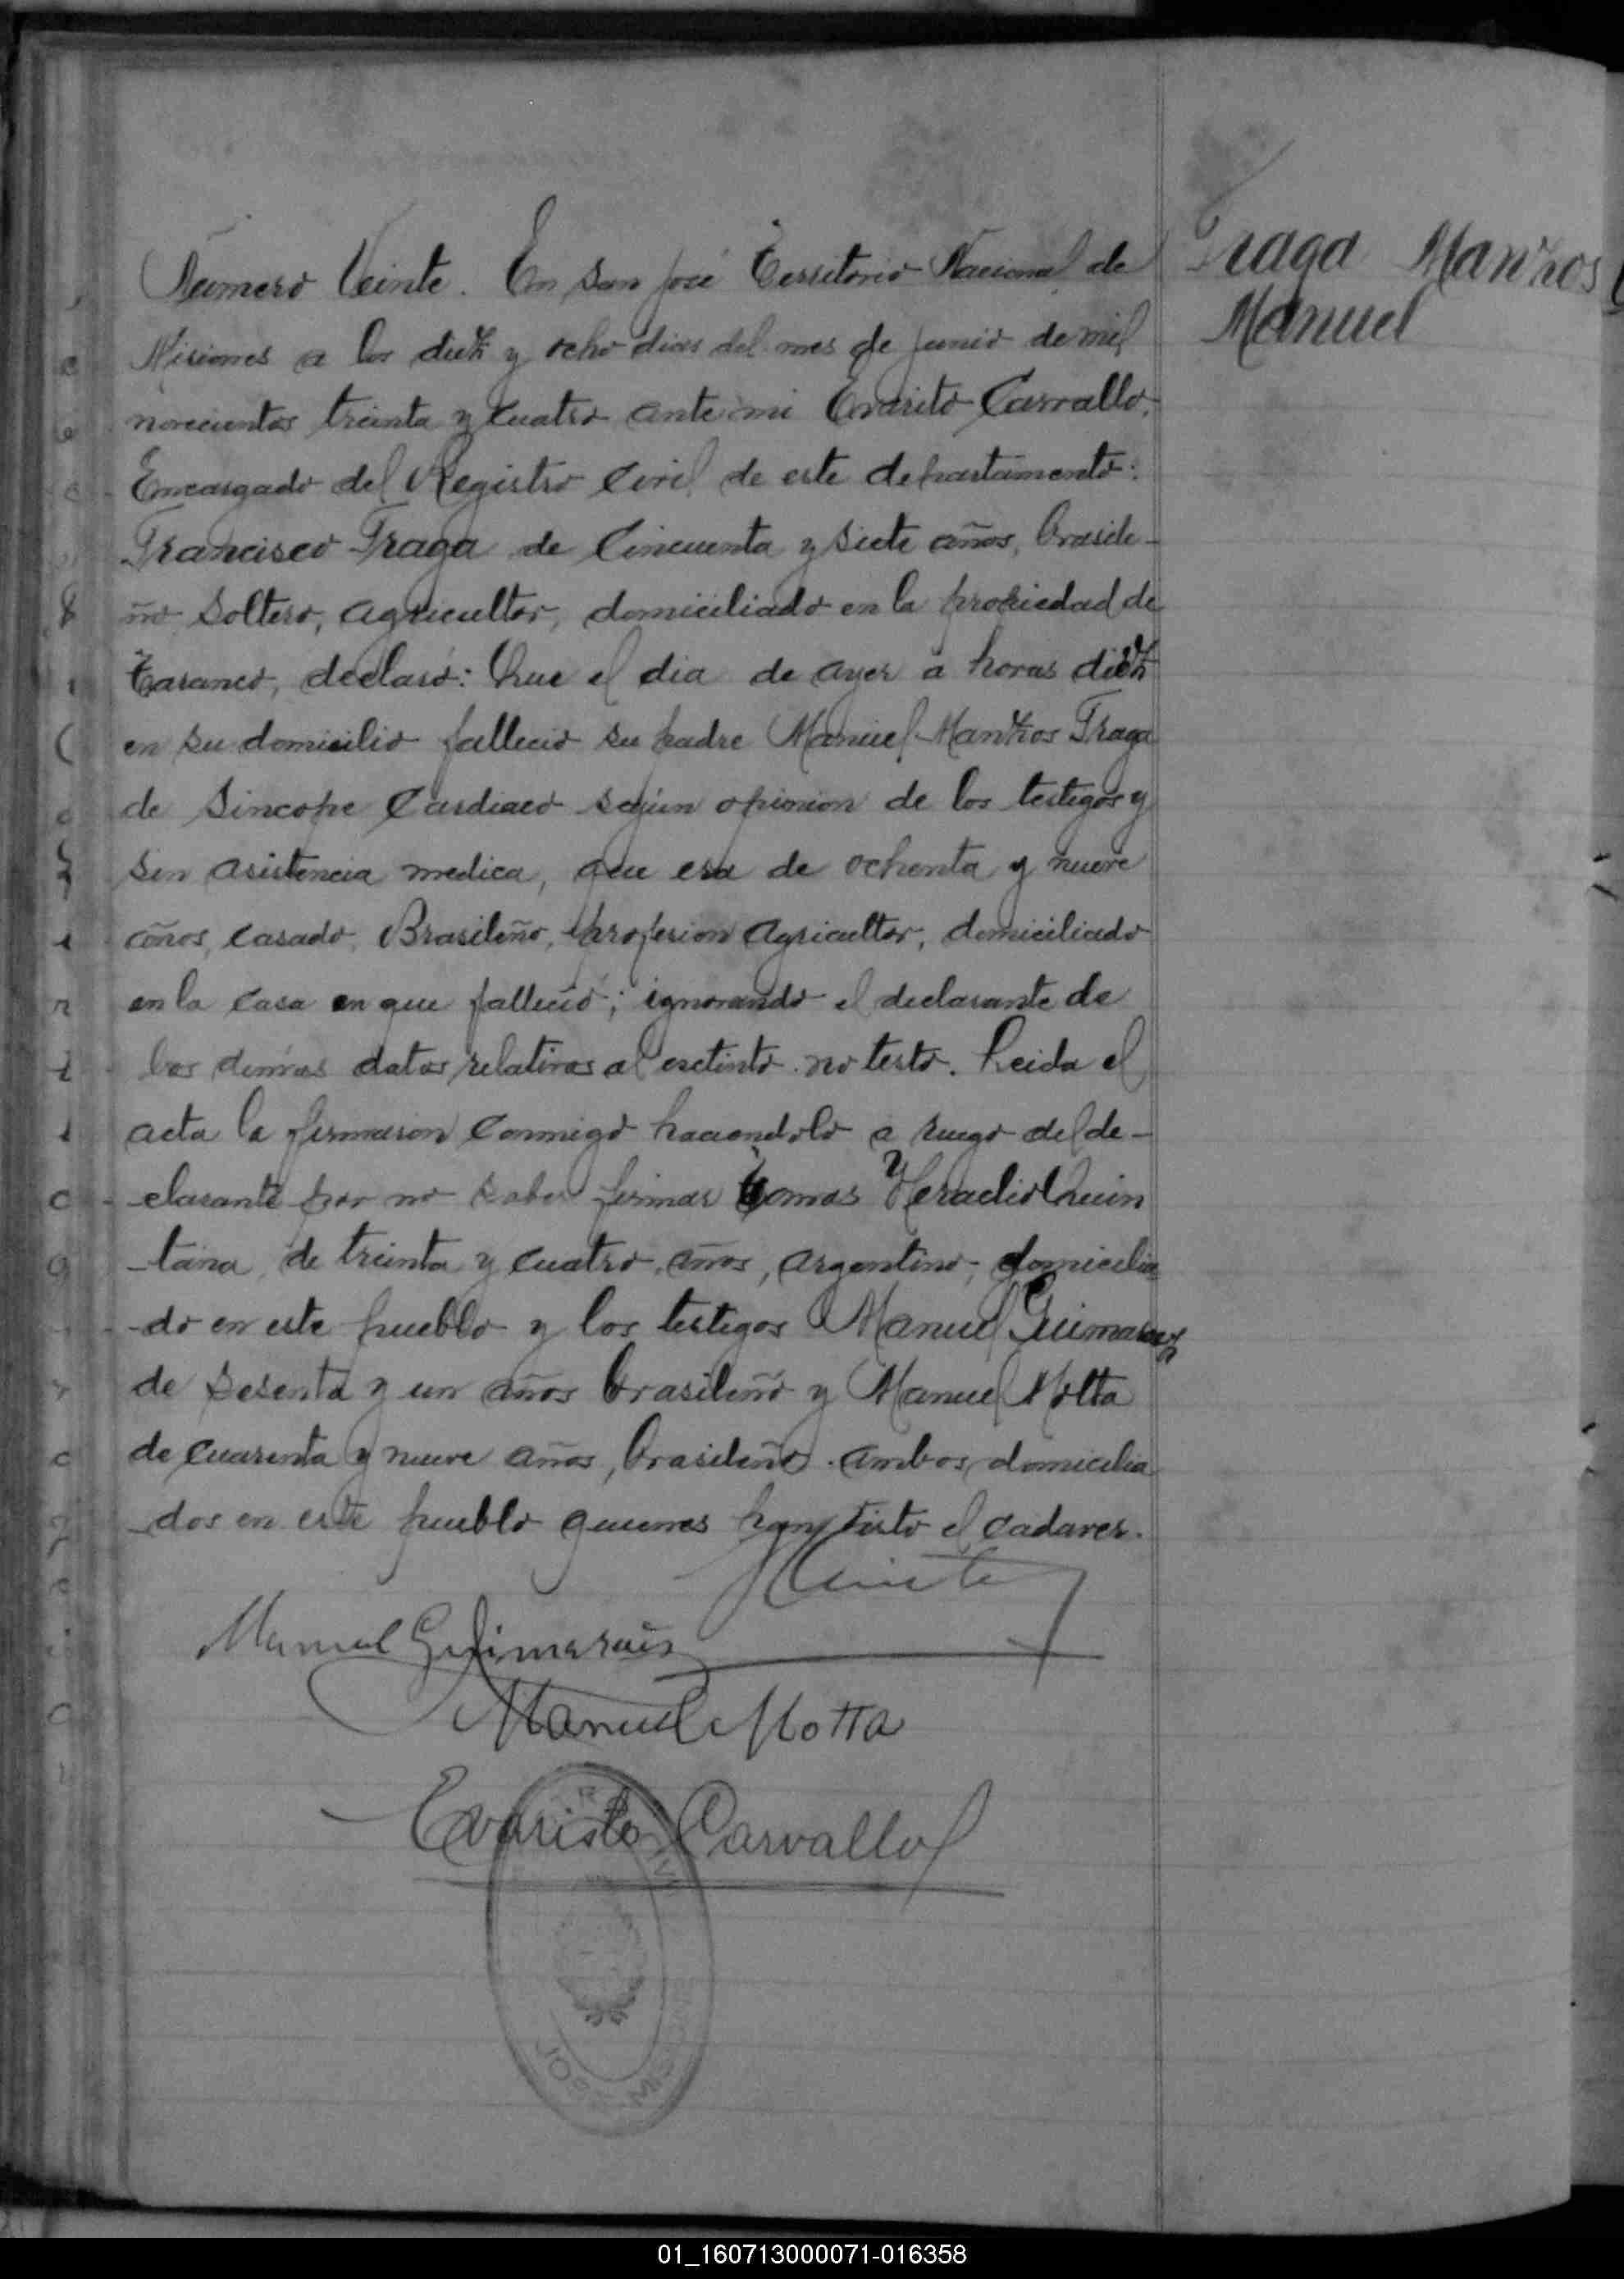 Fraga Manzos
Manuel
Número Veinte. En San José Territorio Nacional de
Misiones a los diez y ocho dias del mes de Junio de mil
novecientos treinta y cuatro ante mi Evarito Carvallo,
Encargado del Registro Civil de este departamento:
Francisco Fraga de Cincuenta y siete años, brasile-
ño soltero, agricultor, domiciliado en la propiedad de
Taranco, declaró: Que el dia de ayer a horas diez
en su domicilio falleció su padre Manuel Manzos Fraga
de Sincope Cardiaco según opinion de los testigos y
sin asistencia medica, que era de ochenta y nueve
años, casado, Brasileño, profesion agricultor, domiciliado
en la casa en que falleció; ignorando el declarante de
los demas datos relativos al esctinto. no testó. Leida el
acta la firmaron conmigo haciendolo a ruego del de-
-clarante por no saber firmar Tomas y Heraclio Quin
-tana, de treinta y cuatro años, argentino, domicilia
-do en este pueblo y los testigos Manuel Guimaraez
de sesenta y un años brasileño y Manuel Motta
de cuarenta y nueve años, brasileño. ambos domicilia
-dos en este pueblo quienes han visto el cadaver.
Manuel Guimaraes
Manuel Motta
Evaristo Carvallo
JOSE MISIONES
01_160713000071-016358